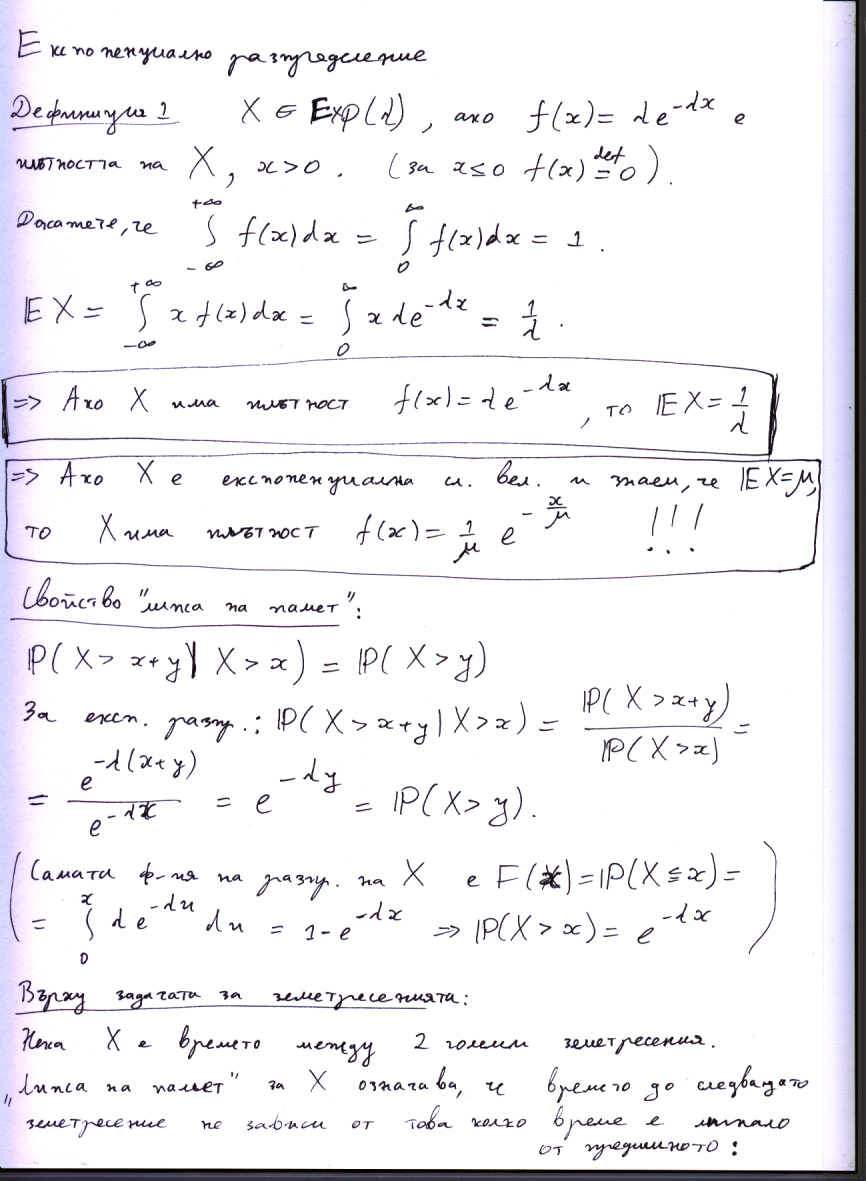 Експоненциално разпределение
Дефиниция 1 X ∈ Exp(λ), ако f(x) = λe^{-λx} е
плътността на X, x>0. (за x≤0 f(x) \overset{def}{=} 0).
Докажете, че ∫_{-∞}^{+∞} f(x)dx = ∫_0^∞ f(x)dx = 1.
𝔼X = ∫_{-∞}^{+∞} x f(x)dx = ∫_0^∞ xλe^{-λx} = 1/λ.
=> Ако X има плътност f(x) = λe^{-λx}, то 𝔼X = 1/λ
=> Ако X е експоненциална сл. вел. и знаем, че 𝔼X=μ,
то X има плътност f(x) = 1/μ e^{-x/μ} !!!
Свойство "липса на памет":
ℙ(X > x+y | X > x) = ℙ(X > y)
За експ. разпр.: ℙ(X > x+y | X > x) = ℙ(X > x+y)/ℙ(X > x) =
= e^{-λ(x+y)}/e^{-λx} = e^{-λy} = ℙ(X > y).
(Самата ф-ия на разпр. на X е F(x) = ℙ(X ≤ x) =
= ∫_0^x λe^{-λu} du = 1-e^{-λx} => ℙ(X > x) = e^{-λx})
Върху задачата за земетресенията:
Нека X е времето между 2 големи земетресения.
„Липса на памет" за X означава, че времето до следващото
земетресение не зависи от това колко време е минало
от предишното: